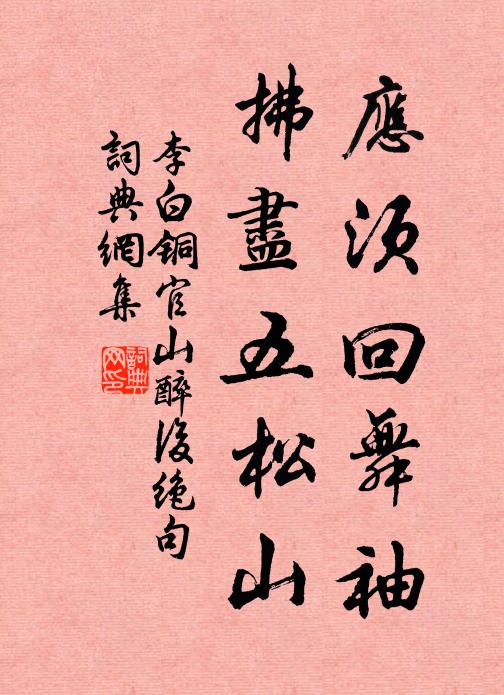 應須回舞袖
拂盡五松山
李白銅官山醉後絕句
詞典網集
詞典網印